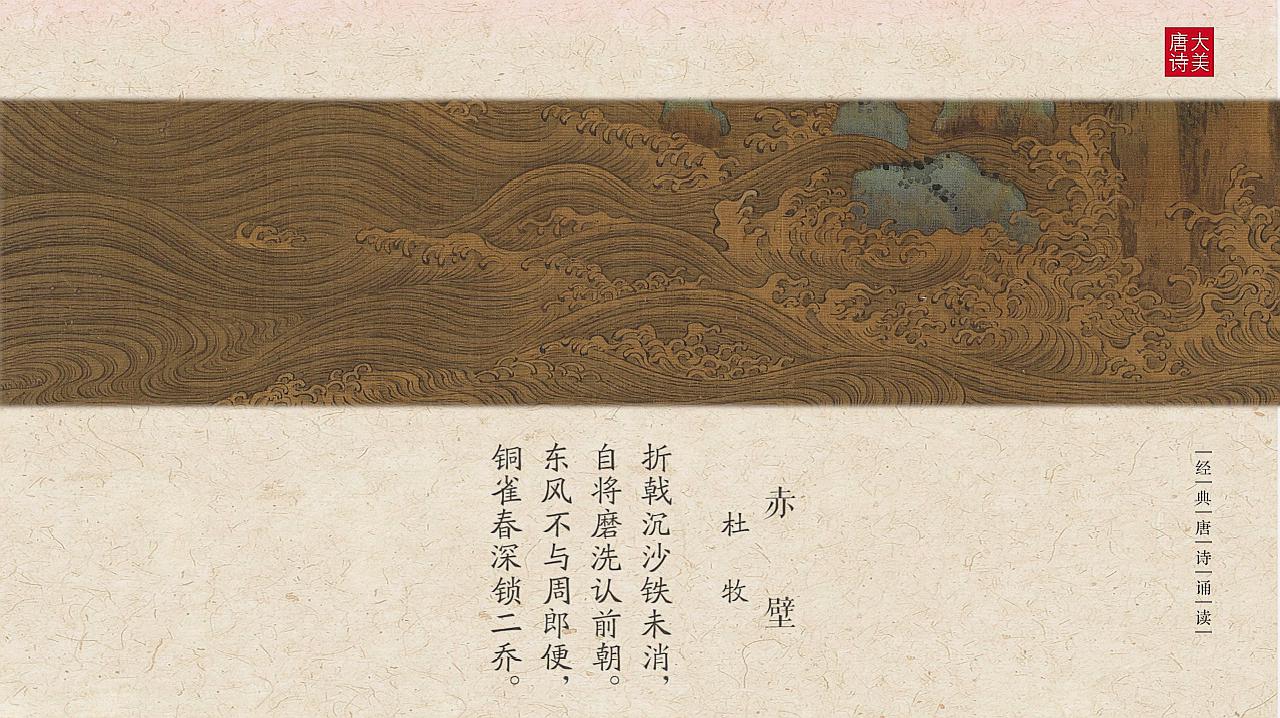 大美
唐诗
经典唐诗诵读
赤壁
杜牧
折戟沉沙铁未消，
自将磨洗认前朝。
东风不与周郎便，
铜雀春深锁二乔。